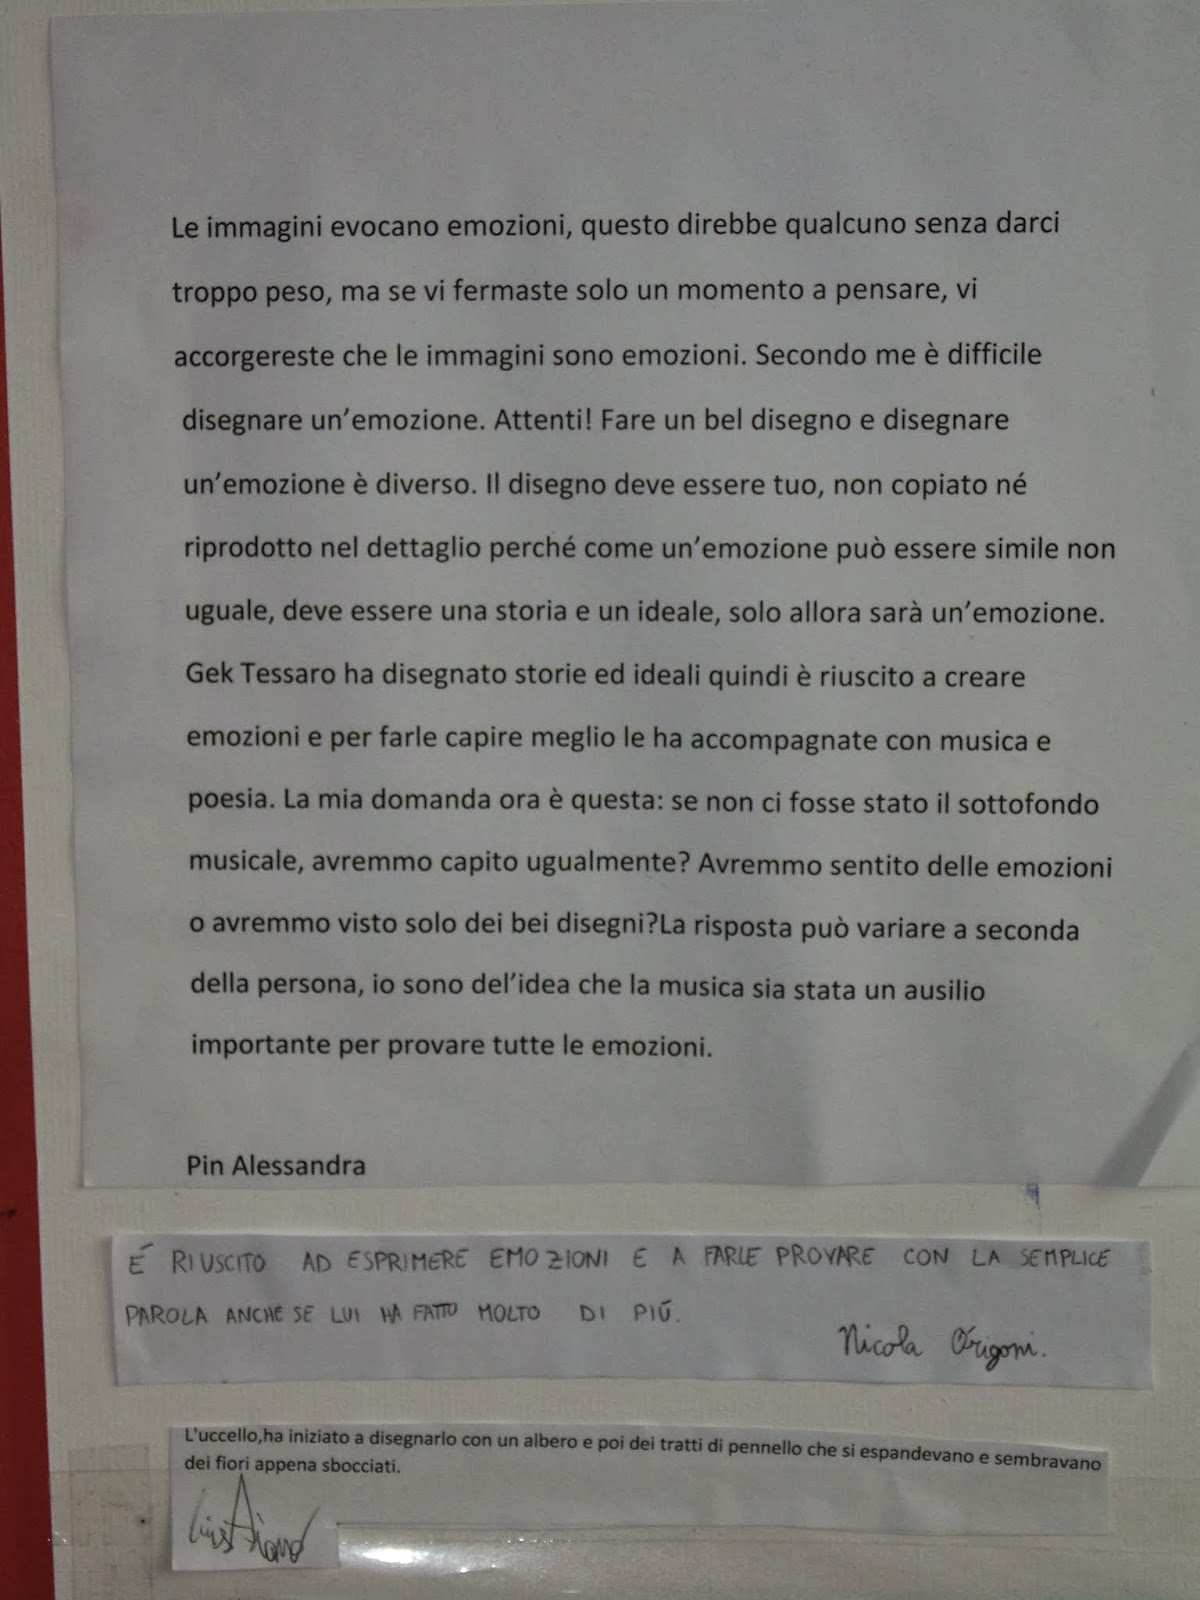 Le immagini evocano emozioni, questo direbbe qualcuno senza darci
troppo peso, ma se vi fermaste solo un momento a pensare, vi
accorgereste che le immagini sono emozioni. Secondo me è difficile
disegnare un'emozione. Attenti! Fare un bel disegno e disegnare
un'emozione è diverso. Il disegno deve essere tuo, non copiato né
riprodotto nel dettaglio perché come un'emozione può essere simile non
uguale, deve essere una storia e un ideale, solo allora sarà un'emozione.
Gek Tessaro ha disegnato storie ed ideali quindi è riuscito a creare
emozioni e per farle capire meglio le ha accompagnate con musica e
poesia. La mia domanda ora è questa: se non ci fosse stato il sottofondo
musicale, avremmo capito ugualmente? Avremmo sentito delle emozioni
o avremmo visto solo dei bei disegni?La risposta può variare a seconda
della persona, io sono del'idea che la musica sia stata un ausilio
importante per provare tutte le emozioni.
Pin Alessandra
É RIUSCITO AD ESPRIMERE EMOZIONI E A FARLE PROVARE CON LA SEMPLICE
PAROLA ANCHE SE LUI HA FATTO MOLTO DI PIÚ.
Nicola Origoni.
L'uccello,ha iniziato a disegnarlo con un albero e poi dei tratti di pennello che si espandevano e sembravano
dei fiori appena sbocciati.